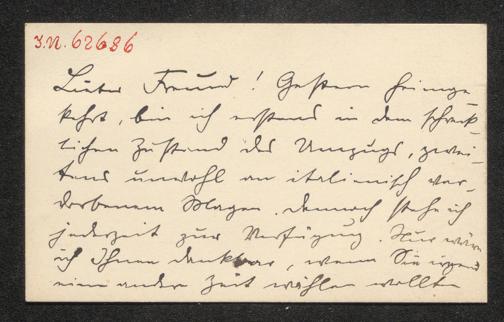 J.N. 62686
Lieber Freund! Gestern heimge-
kehrt, bin ich erstens in dem schreck-
lichen Zustand des Umzugs, zwei-
tens unwohl an italienisch ver-
dorbenem Magen. Dennoch stehe ich
jederzeit zur Verfügung. Nur wäre
ich Ihnen dankbar, wenn Sie irgend
eine andere Zeit wählen wollten